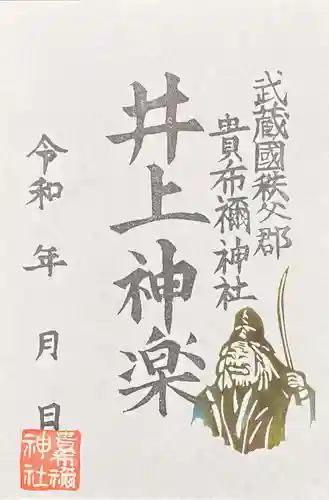 武蔵國秩父郡
貴布禰神社
井上神楽
令和　年　月　日
貴布禰
神社